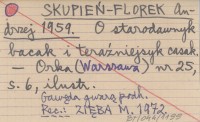 SKUPIEŃ-FLOREK An-
drzej 1959. O starodawnyk
bacak i teraźniejsyk casak.
– Orka (Warszawa) nr 25,
s. 6, ilustr.
Gawęda gwarą podh.
Rec.: ZIĘBA M. 1972